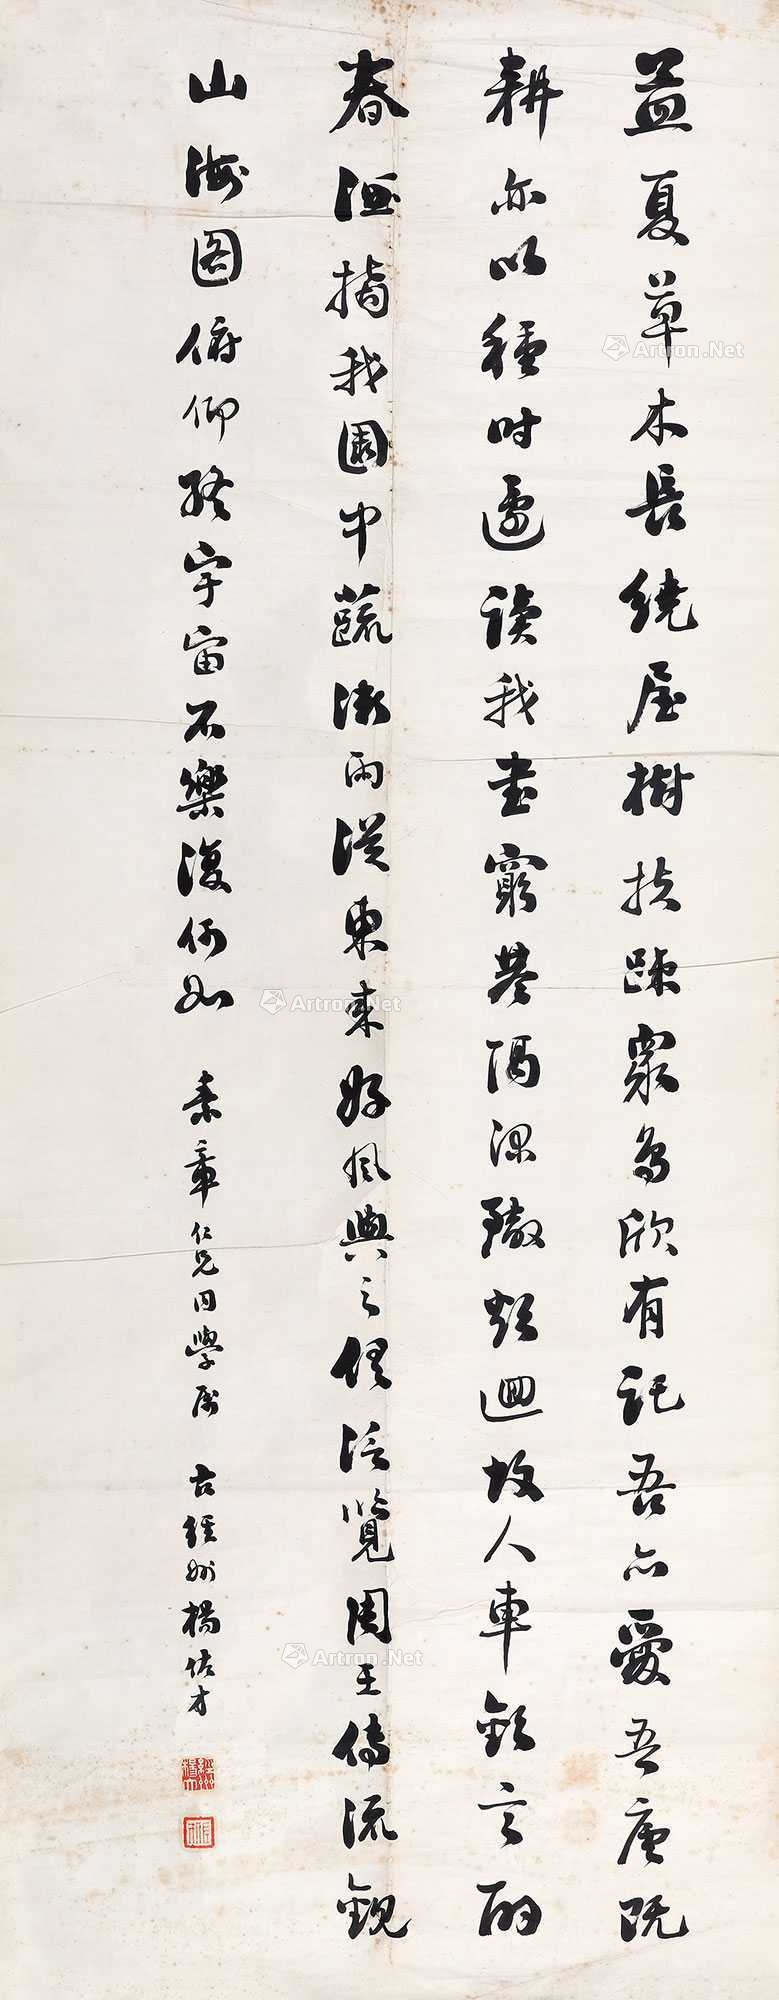 孟夏草木長繞屋樹扶疎眾鳥欣有託吾亦愛吾廬既
耕亦以種時還讀我書窮巷隔深轍頗迴故人車歡言酌
春酒摘我園中蔬微雨從東來好風與之俱泛覽周王傳流觀
山海圖俯仰終宇宙不樂復何如 素章仁兄同學屬 古經州楊佐才
Artron.Net
Artron.Net
Artron.Net